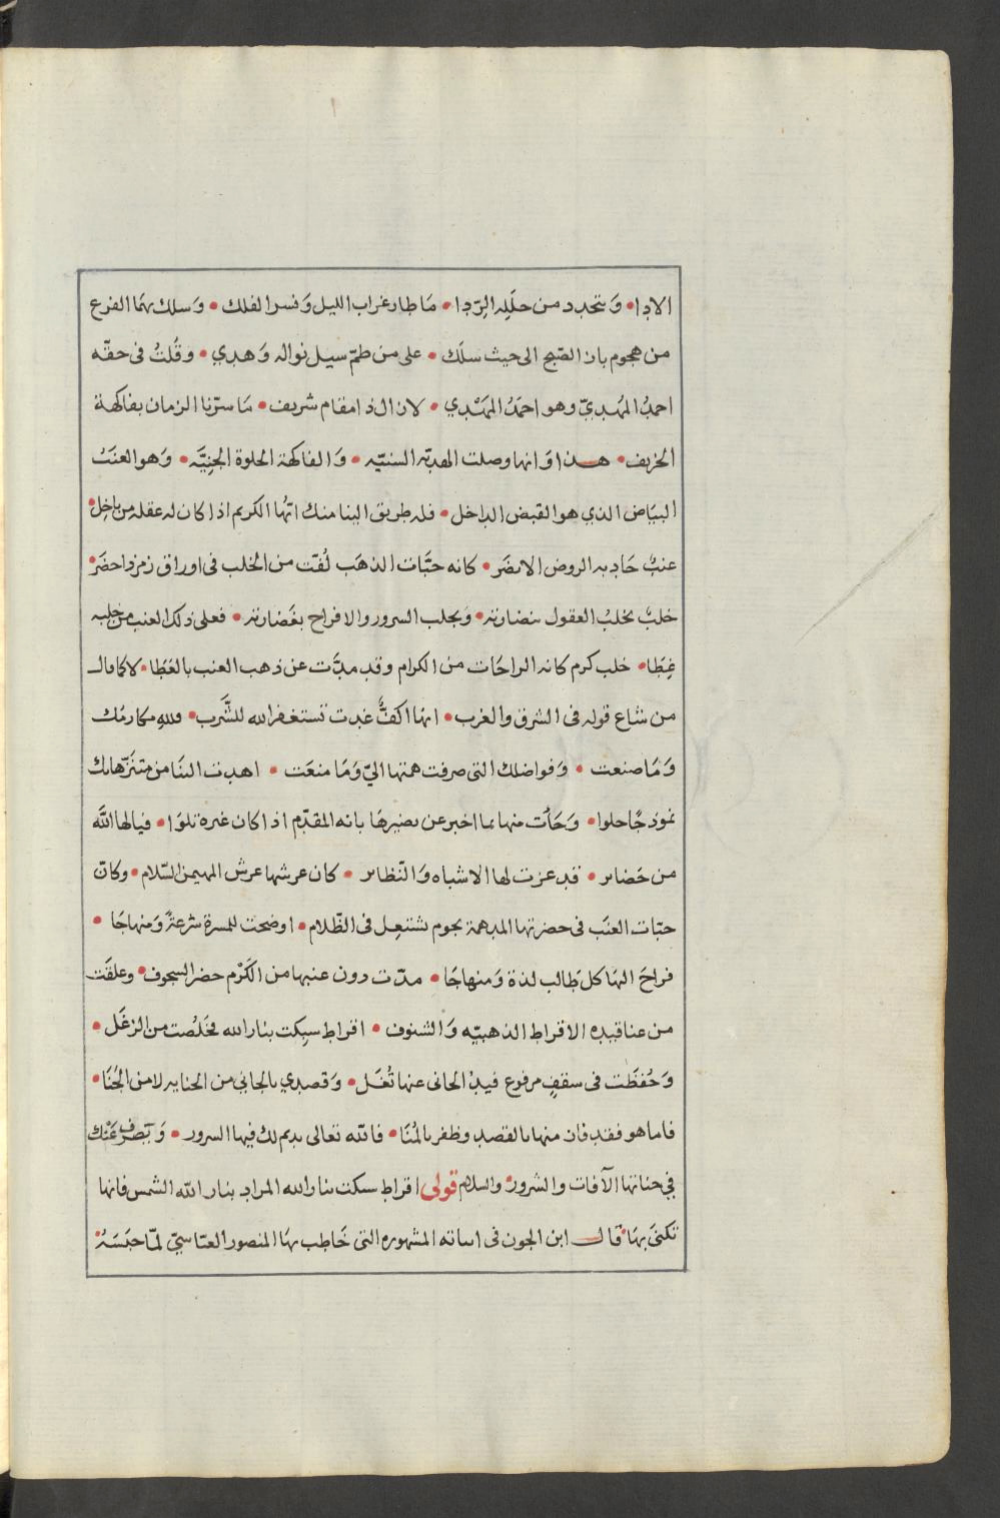 الادا • وَيتجدد من حلَلِه الرّدا • مَا طار غراب الليل وَنسر الفلك • وَسلك بهَما الفزع
من هجوم باز الصّبح الى حيث سلَك • على من طمّ سيل نواله وَهدي • وقُلتُ فى حقّه
احمدُ المَهديّ وهو احمَدُ المَهْدي • لازال ذا مقام شريف • مَا سرّنا الزمان بفاكهة
الخريف • هـذا وَانها وصلت الهديّه السنيّه • وَالفاكهة الحلوة الجنِيَّه • وَهو العنَبُ
البيَاض الذي هو القبض الداخل • فله طريق الينا منك ايّها الكريم اذا كان له عقله من داخِل •
عنبٌ جَاد به الروض الانضَر • كانه حبَّات الذهَب لُفّت من الخلب فى اوراق زمرد احضَر •
خلبٌ يخلبُ العقول بنضارته • وَيجلب السرور والافراح بغَضارته • فعلى ذلك العنب من خلبه
غِطَا • خلب كرم كانه الراحَات من الكرام وقد مدَّت عن ذهب العنب بالعَطَا • لا كما قالـ
من شاع قوله فى الشرق والغرب • انها اكفٌّ غدت تستغفر الله للشَّرب • فللهِ مكارمُك
وَمَا صنعت • وَفواضلك التى صرفت همّتها اليّ وَمَا منعَت • اهدت الينَا من متنَزّهاتك
نموذجًا حلوا • وَجَات منها بما اخبر عن نضيرهَا بانه المقدّم اذا كان غيره تلوَا • فيا لها اللّه
من حَضاير • قد عزت لها الاشباه وَالنّظاير • كان عرشها عرش المهيمن السّلام • وكانّ
حبّات العنَب فى حضرتها المدهمة نجوم تشتعِل فى الظّلام • اوضحت للمسرة شرعةً وَمنهاجَا •
فراحَ اليهَا كل طَالب لذة وَمنهاجَا • مدّت دون عنبها من الكَرْم حضر السجوف • وعلقَت
من عناقيده الاقراط الذهبيّه وَالشنوف • اقراط سبِكت بنار الله فخَلُصت من الزغَل •
وَحُفظَت فى سقفٍ مرفوع فيدُ الجانى عنها تُغَل • وَقصدي بالجانِي من الجنايه لا من الجُنَا •
فاما هو فقد فاز منها بالقصد وظفر بالمُنَا • فاللّه تعالى يديم لك فيها السرور • وَيَصرف عَنْك
في جناتها الآفات والشرور • والسلام قولى اقراط سبكت بنار الله المراد بنار اللّه الشمس فانها
تكنَى بهَا • قَالـــ ابن الجون فى ابياته المشهوره التى خَاطب بهَا المنصور العبّاسِيّ لمّا حبَسَهُ •